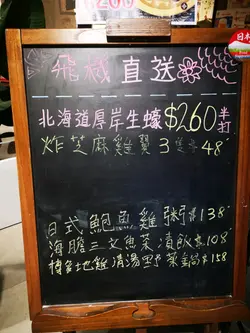 $200
日本
飛機直送
北海道厚岸生蠔$260半打
炸芝麻雞翼3隻$48
日式鮑魚雞粥$138
海膽三文魚茶漬飯$108
博多地雞清湯野菜鍋$158